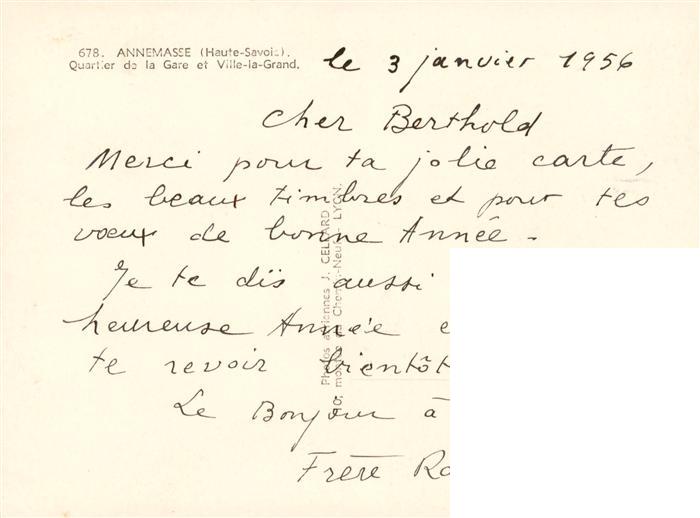 678. ANNEMASSE (Haute-Savoie).
Quartier de la Gare et Ville-la-Grand.
le 3 janvier 1956
Cher Berthold
Merci pour ta jolie carte,
les beaux timbres et pour tes
vœux de bonne Année -
Je te dis aussi
heureuse Année e
te revoir bientôt
Le Bonjour à
Frère Ro
Photos aériennes J. CELLARD
LYON.